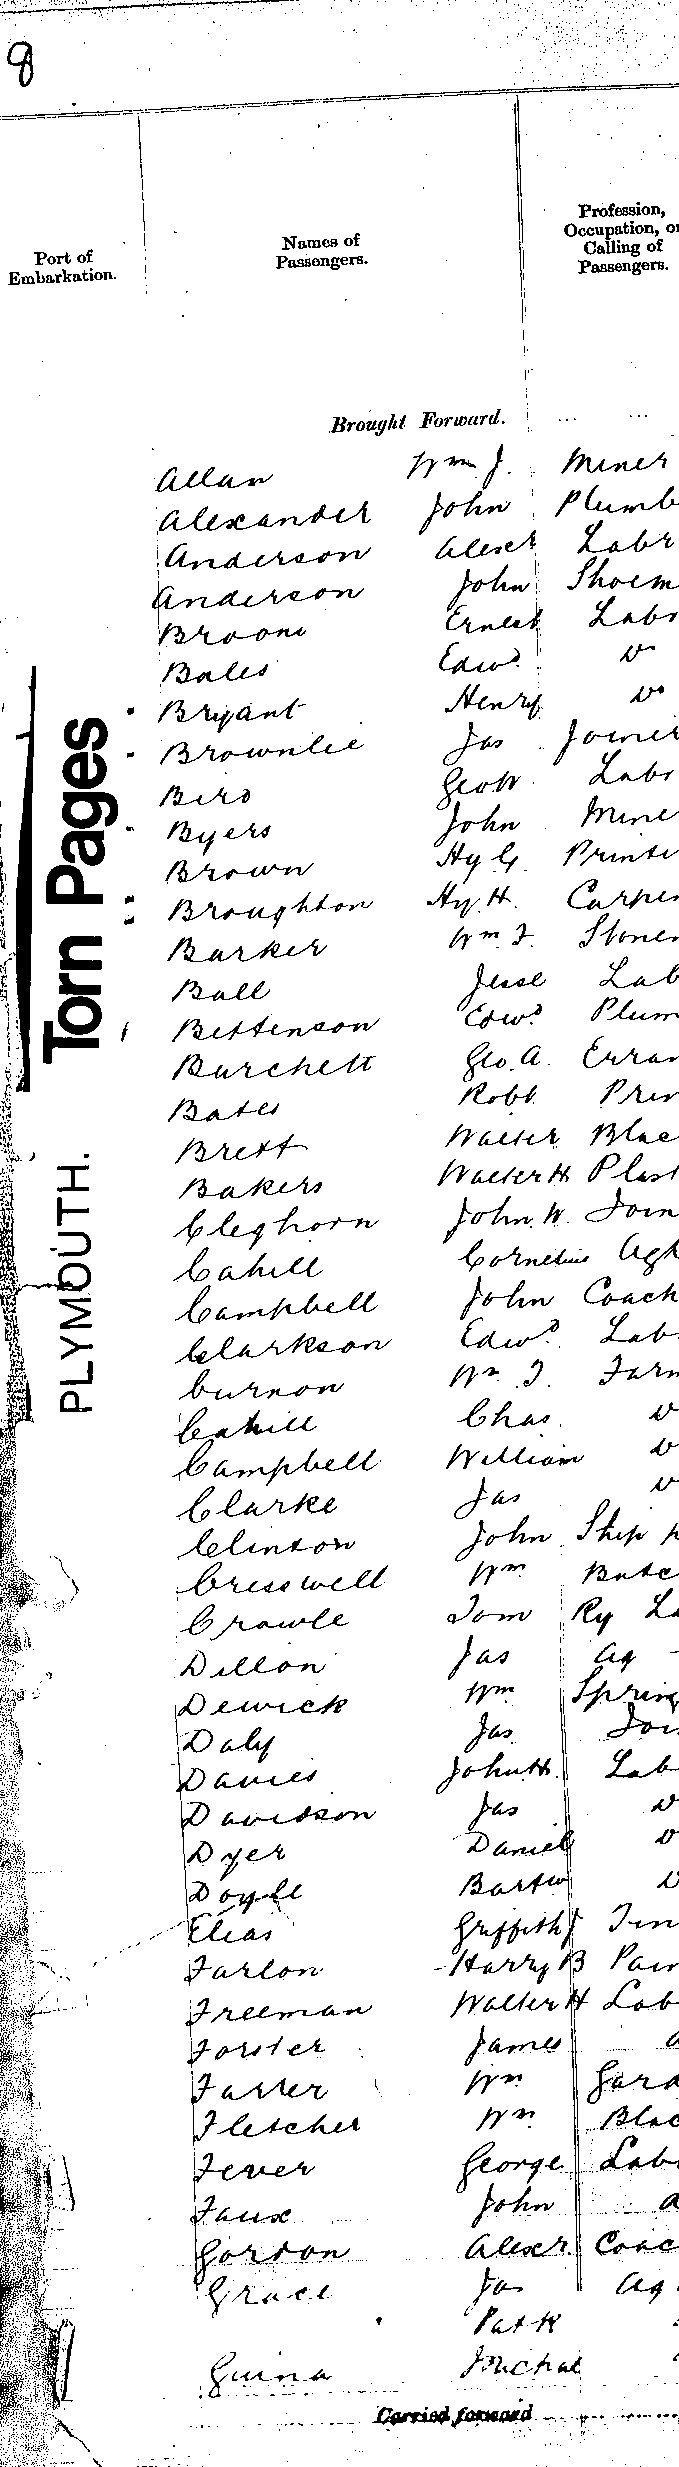 8
Port of Embarkation.
Names of Passengers.
Profession, Occupation, or Calling of Passengers.
Brought Forward.
Allan Wm J. Miner
Alexander John Plumb
Anderson Alexr Labr
Anderson John Shoem
Broom Ernest Labr
Bales Edwd. Do
Bryant Henry Do
Brownlee Jas Joiner
Bird Geo W. Labr
Byers John Mine
Brown Hy G. Printe
Broughton Hy. H. Carpen
Barker Wm J. Stonem
Ball Jesse Lab
Bettenson Edwd. Plum
Burchett Geo. A. Erran
Bates Robt. Prin
Brett Walter Blac
Bakers Walter H Plast
Cleghorn John. W. Join
Cahill Cornelius Ag
Campbell John Coach
Clarkson Edwd. Lab
Curnon Wm. J. Farm
Cahill Chas. D
Campbell William D
Clarke Jas D
Clinton John Ship p
Cresswell Wm Butc
Crowle Tom Ry La
Dillon Jas Ag
Dewick Wm Spring
Daly Jas Joi
Davies John H. Lab
Davidson Jas D
Dyer Daniel D
Doyle Bartw D
Elias Griffith J Tin
Farlon Harry B Pain
Freeman Walter H Lab
Forster James a
Farrer Wm Gard
Fletcher Wm Blac
Fever George Lab
Faux John a
Gordon Alexr Coac
Grace Jas Ag.
Patk
Guina Michal
Carried forward
Torn Pages
PLYMOUTH.